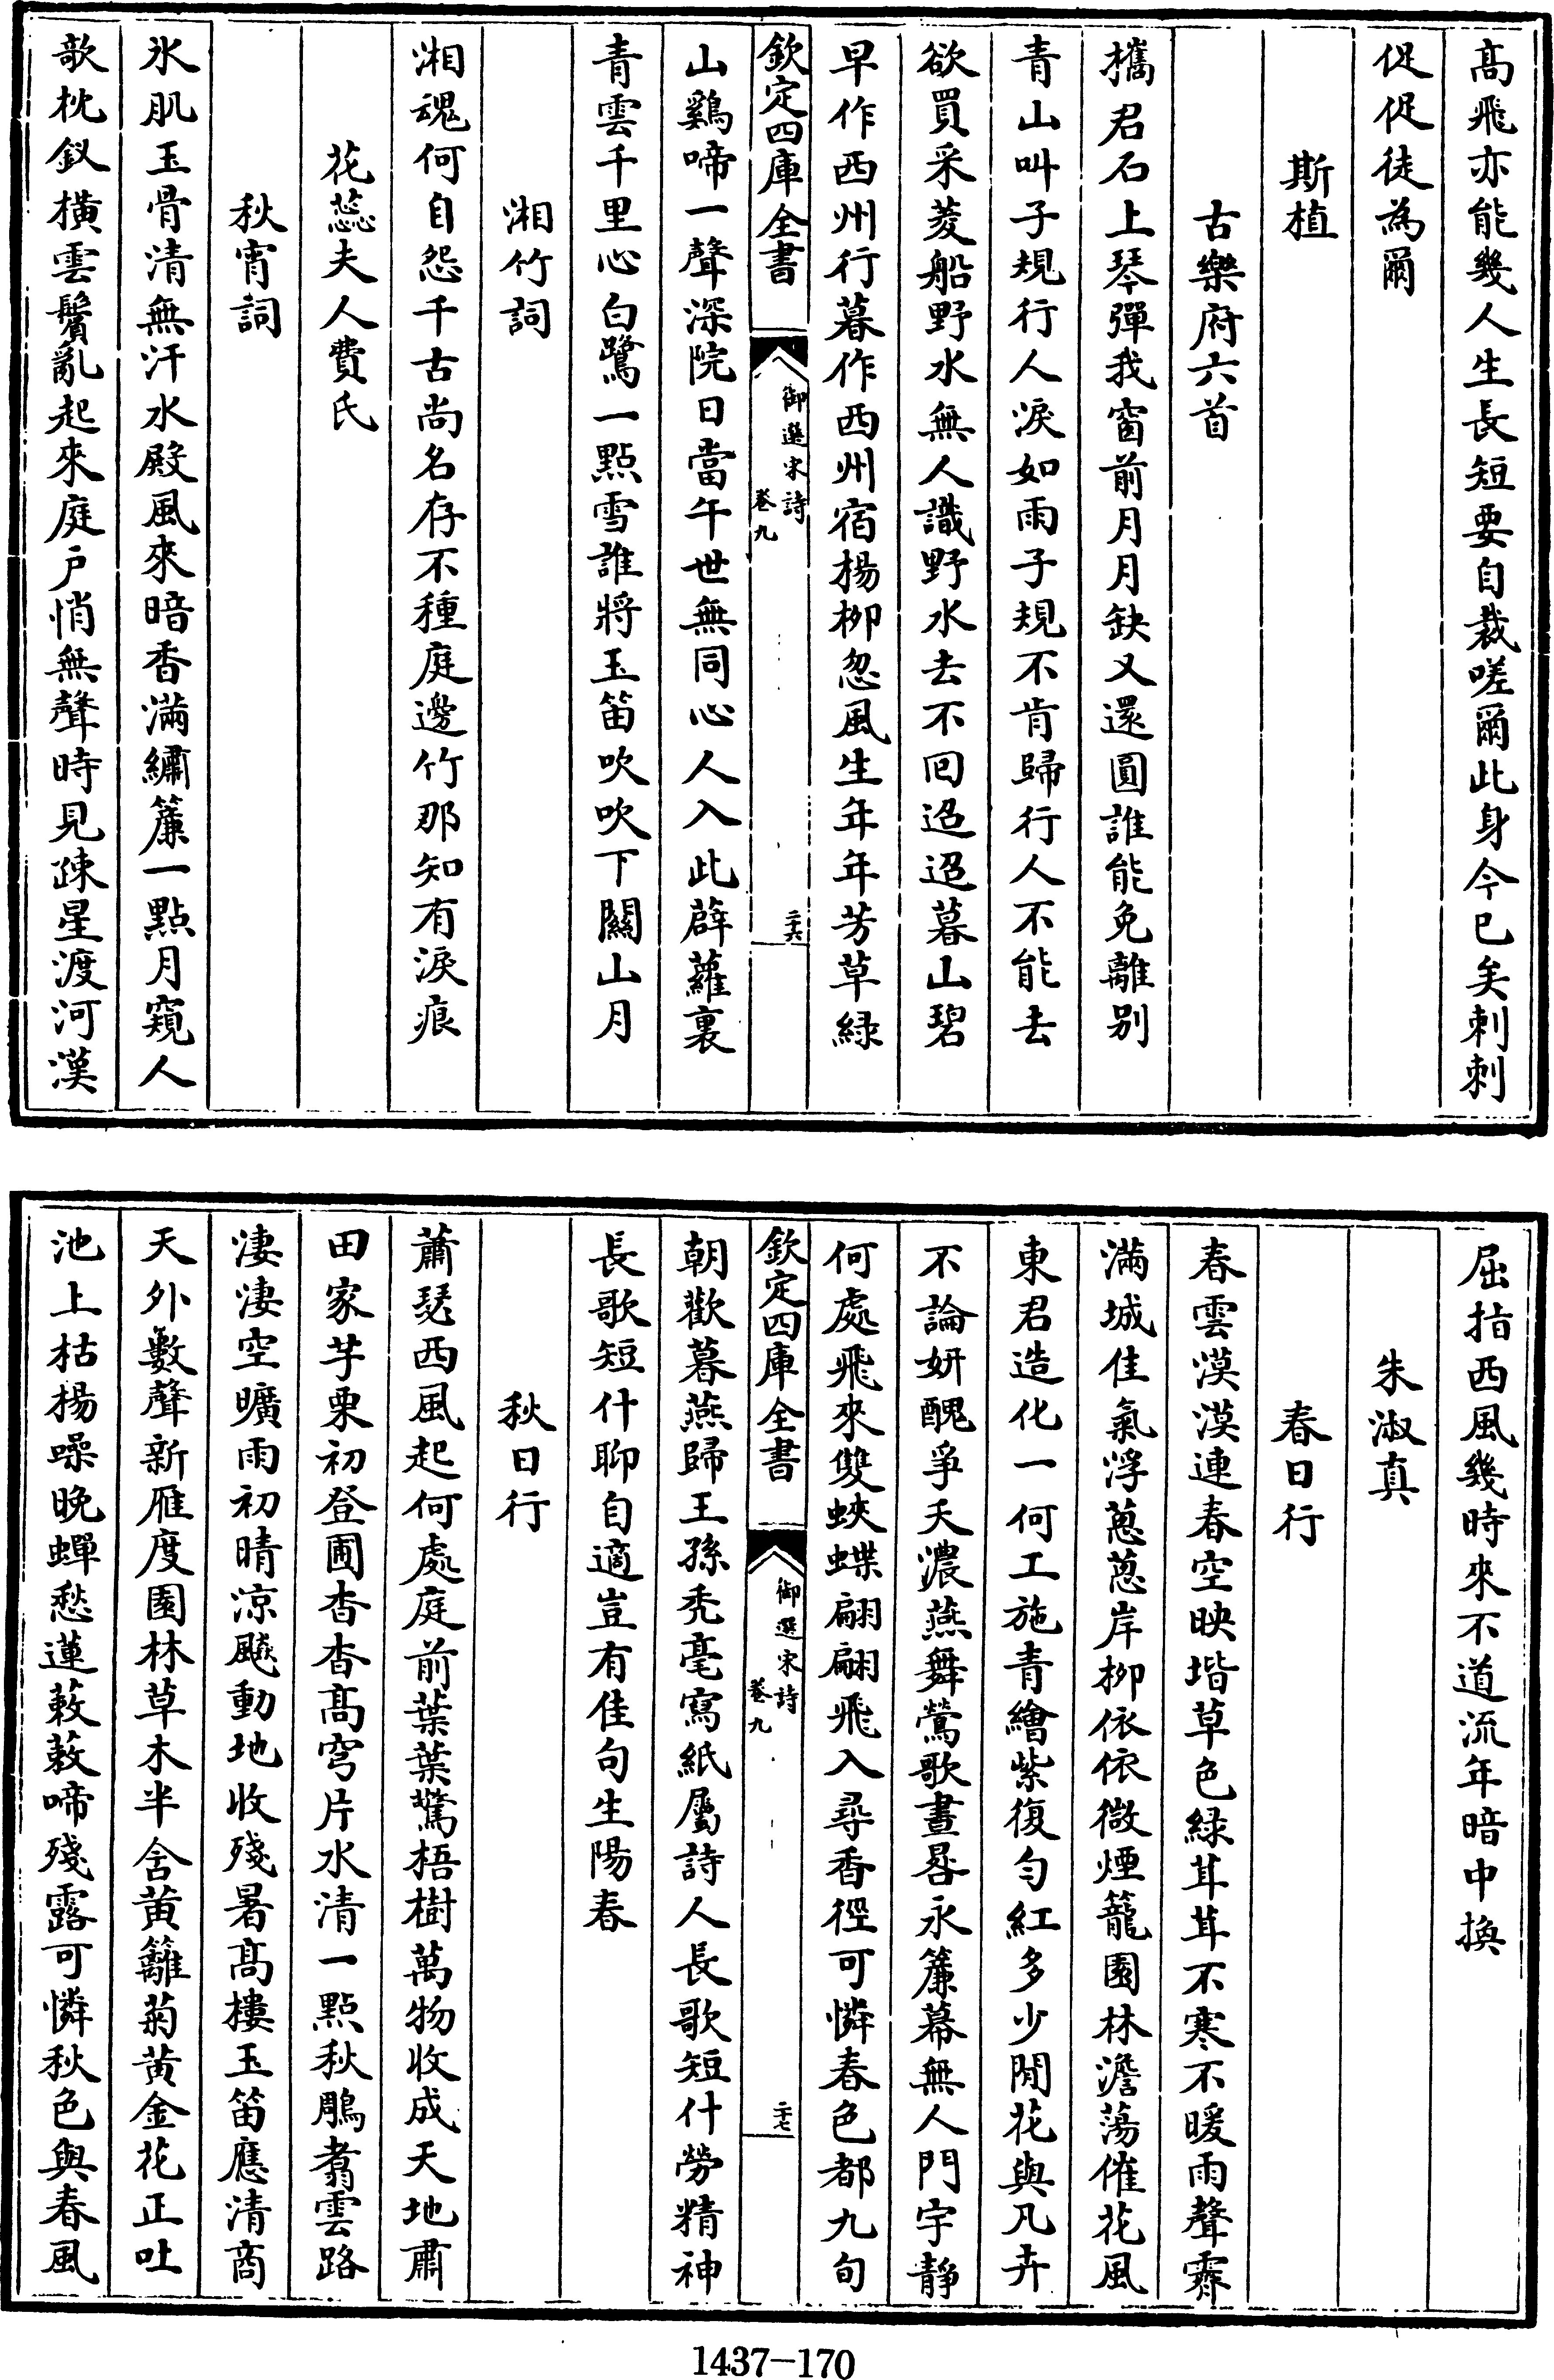 高飛亦能幾人生長短要自裁嗟爾此身今已矣刺刺
促促徒為爾
斯植
古樂府六首
攜君石上琴彈我窗前月月缺又還圓誰能免離別
青山叫子規行人淚如雨子規不肯歸行人不能去
欲買采菱船野水無人識野水去不回迢迢暮山碧
早作西州行暮作西州宿楊柳忽風生年年芳草綠
欽定四庫全書
御選宋詩
卷九
二十六
山鷄啼一聲深院日當午世無同心人入此薜蘿裏
青雲千里心白鷺一點雪誰將玉笛吹吹下關山月
湘竹詞
湘魂何自怨千古尚名存不種庭邊竹那知有淚痕
花蕊夫人費氏
秋宵詞
氷肌玉骨清無汗水殿風來暗香滿繡簾一點月窺人
欹枕釵橫雲鬢亂起來庭戶悄無聲時見疎星渡河漢
屈指西風幾時來不道流年暗中換
朱淑真
春日行
春雲漠漠連春空映堦草色綠茸茸不寒不暖雨聲霽
滿城佳氣浮蔥蔥岸柳依依微煙籠園林澹蕩催花風
東君造化一何工施青繪紫復勻紅多少閒花與凡卉
不論妍醜爭夭濃燕舞鶯歌晝晷永簾幕無人門宇靜
何處飛來雙蛺蝶翩翩飛入尋香徑可憐春色都九旬
欽定四庫全書
御選宋詩
卷九
二十七
朝歡暮燕歸王孫禿毫寫紙屬詩人長歌短什勞精神
長歌短什聊自適豈有佳句生陽春
秋日行
蕭瑟西風起何處庭前葉葉驚梧樹萬物收成天地肅
田家芋栗初登圃杳杳高穹片水清一點秋鵰翥雲路
淒淒空曠雨初晴涼飈動地收殘暑高樓玉笛應清商
天外數聲新雁度園林草木半含黃籬菊黃金花正吐
池上枯楊噪晚蟬愁蓮蔌蔌啼殘露可憐秋色與春風
1437-170